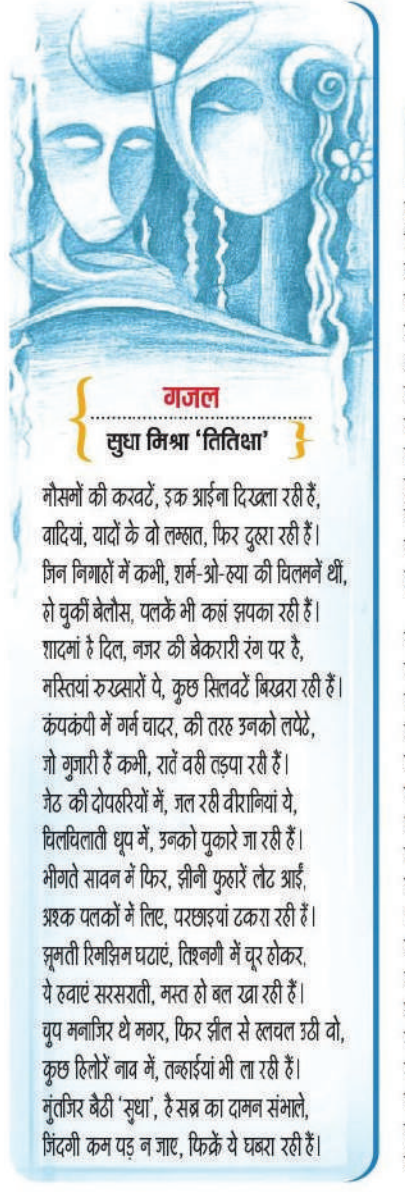 गजल
सुधा मिश्रा ‘तितिक्षा’
मौसमों की करवटें, इक आईना दिखला रही हैं,
वादियां, यादों के वो लम्हात, फिर दुहरा रही हैं।
जिन निगाहों में कभी, शर्म-ओ-हया की चिलमनें थीं,
हो चुकीं बेलौस, पलकें भी कहां झपका रही हैं।
शादमां है दिल, नजर की बेकरारी रंग पर है,
मस्तियां रुख्सारों पे, कुछ सिलवटें बिखरा रही हैं।
कंपकंपी में गर्म चादर, की तरह उनको लपेटे,
जो गुजारी हैं कभी, रातें वही तड़पा रही हैं।
जेठ की दोपहरियों में, जल रही वीरानियां ये,
चिलचिलाती धूप में, उनको पुकारे जा रही हैं।
भीगते सावन में फिर, झीनी फुहारें लौट आईं,
अश्क पलकों में लिए, परछाइयां टकरा रही हैं।
झूमती रिमझिम घटाएं, तिश्नगी में चूर होकर,
ये हवाएं सरसराती, मस्त हो बल खा रही हैं।
चुप मनाजिर थे मगर, फिर झील से हलचल उठी वो,
कुछ हिलोरें नाव में, तन्हाईयां भी ला रही हैं।
मुंतजिर बैठी ‘सुधा’, है सब्र का दामन संभाले,
जिंदगी कम पड़ न जाए, फिक्रें ये घबरा रही हैं।